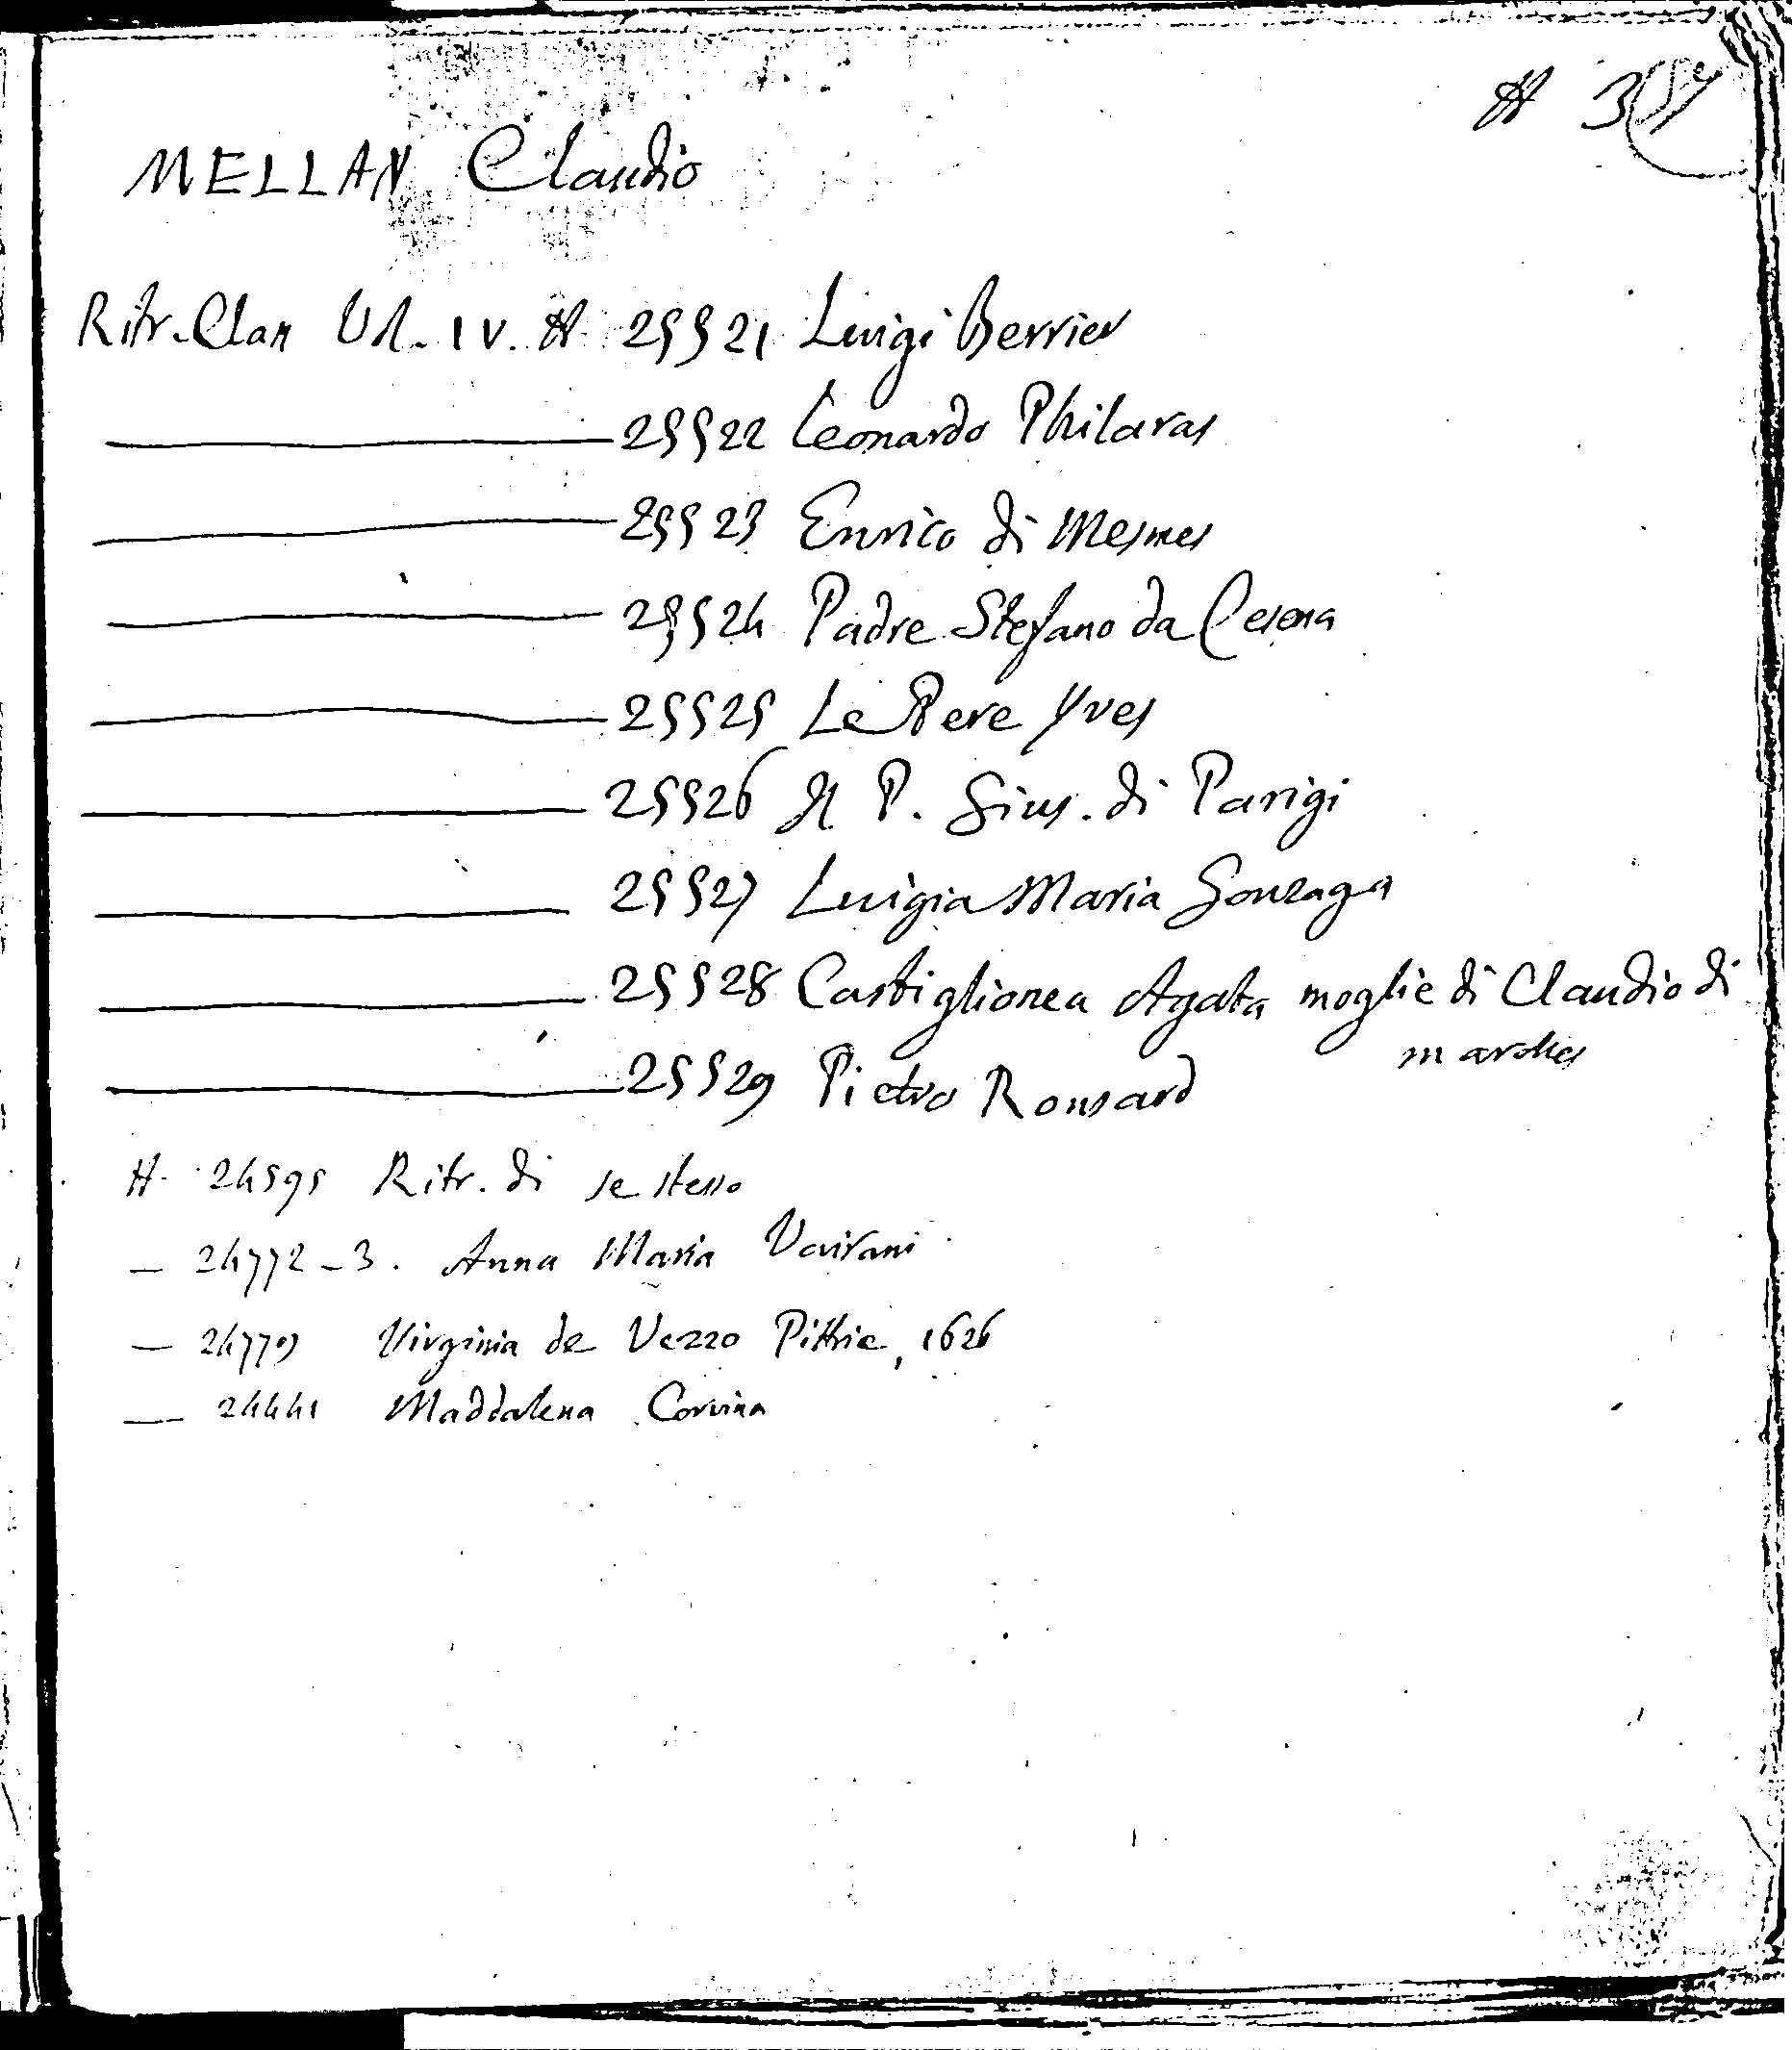 H 357
MELLAN Claudio
Ritr. Clan Vol. IV. H 25521 Luigi Berrier
25522 Leonardo Philaras
25523 Enrico di Mesmes
25524 Padre Stefano da Cesena
25525 Le Pere Yves
25526 Il P. Gius. di Parigi
25527 Luigia Maria Gonzaga
25528 Castiglionea Agata moglie di Claudio di
maroles
25529 Pietro Ronsard
H. 24595 Ritr. di se stesso
— 24772-3. Anna Maria Vairani
— 24779 Virginia de Vezzo Pittrice, 1626
— 24441 Maddalena Corvina